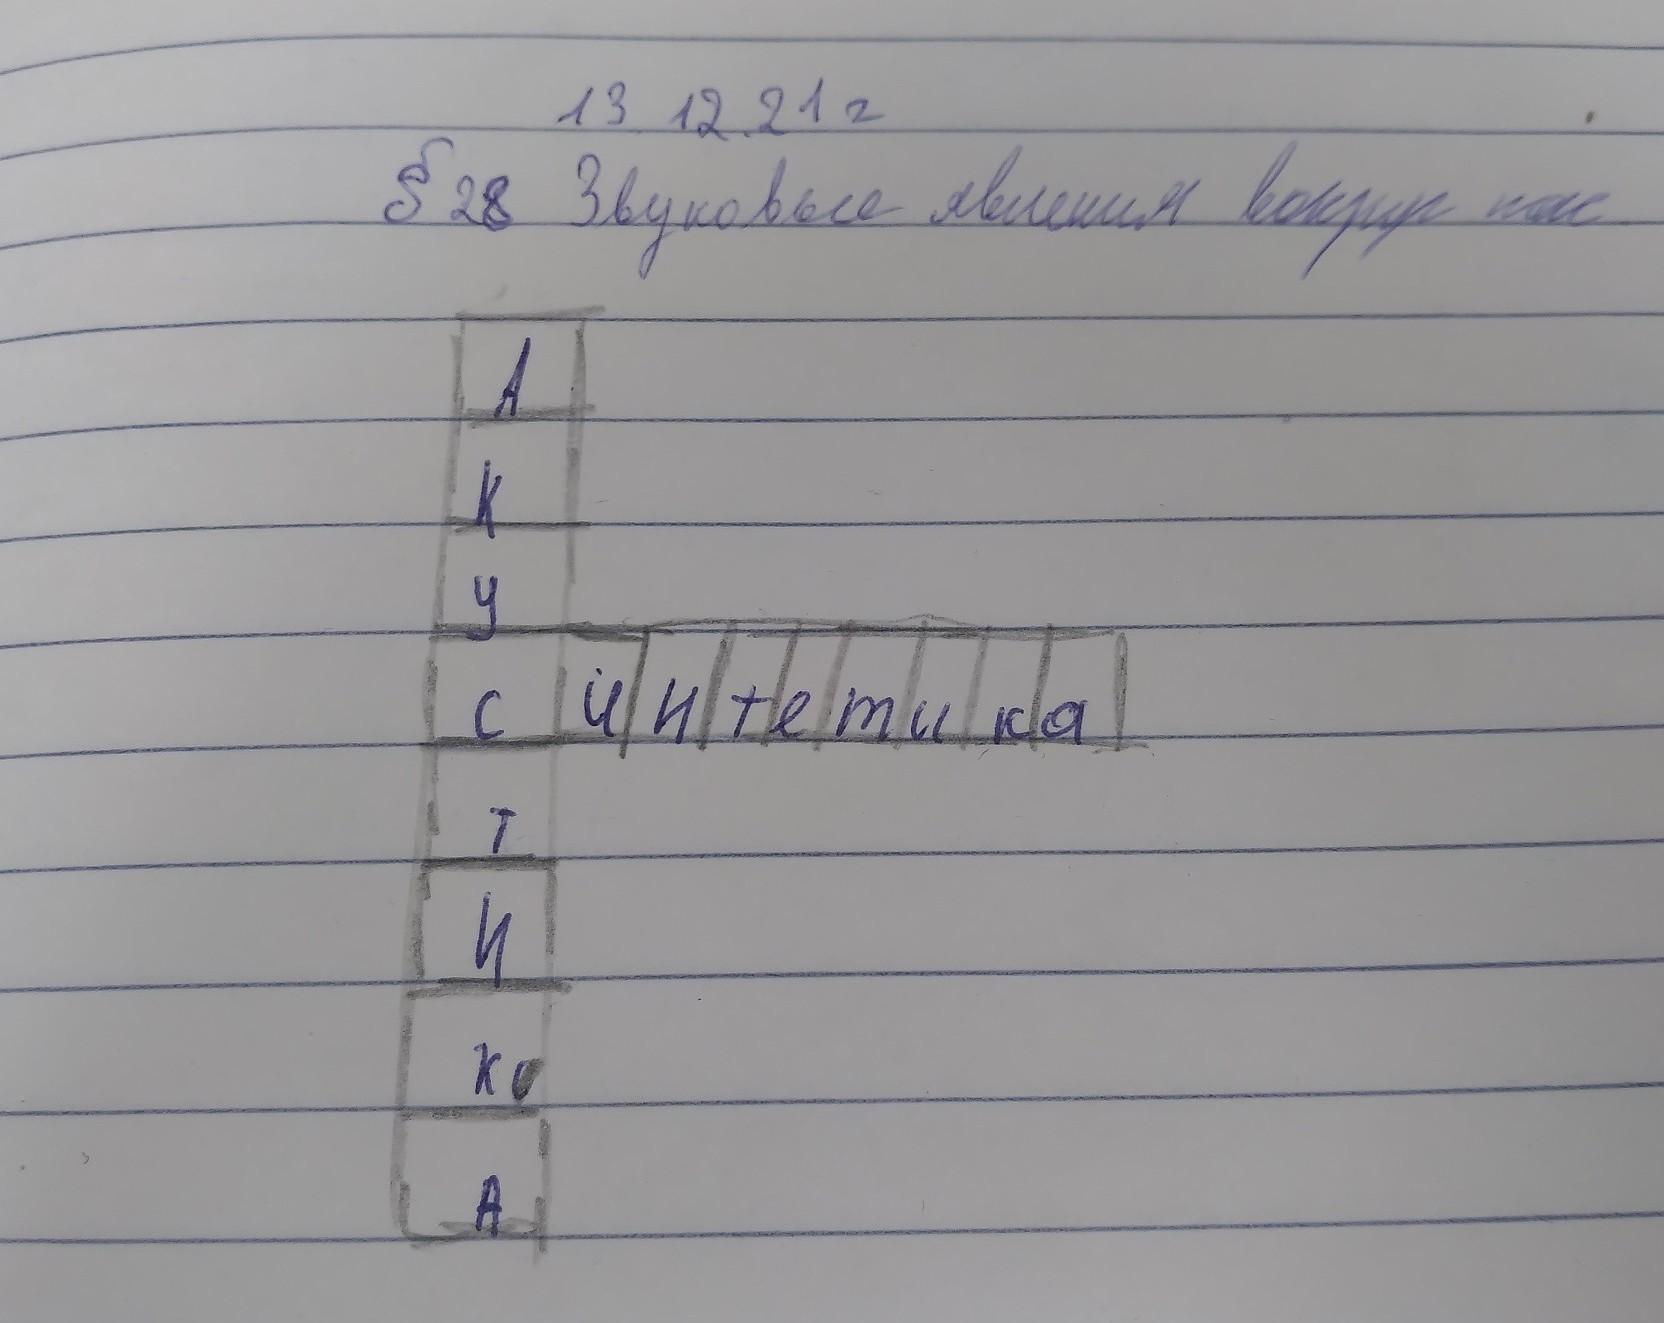 13 12.21г
§ 28 Звуковые явления вокруг нас
А
К
У
Синтетика
Т
И
К
А